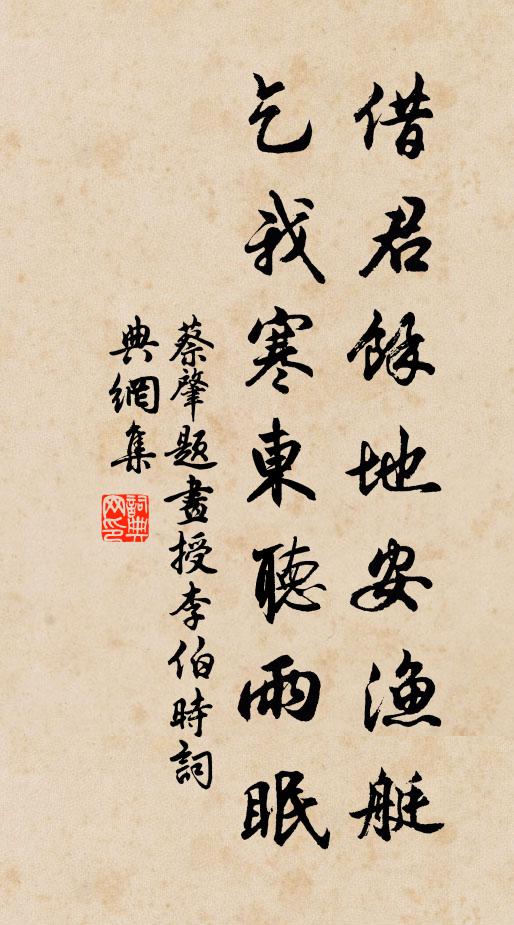 借君餘地安漁艇
乞我寒東聽雨眠
蔡肇題畫授李伯時詞
典網集
詞典網印